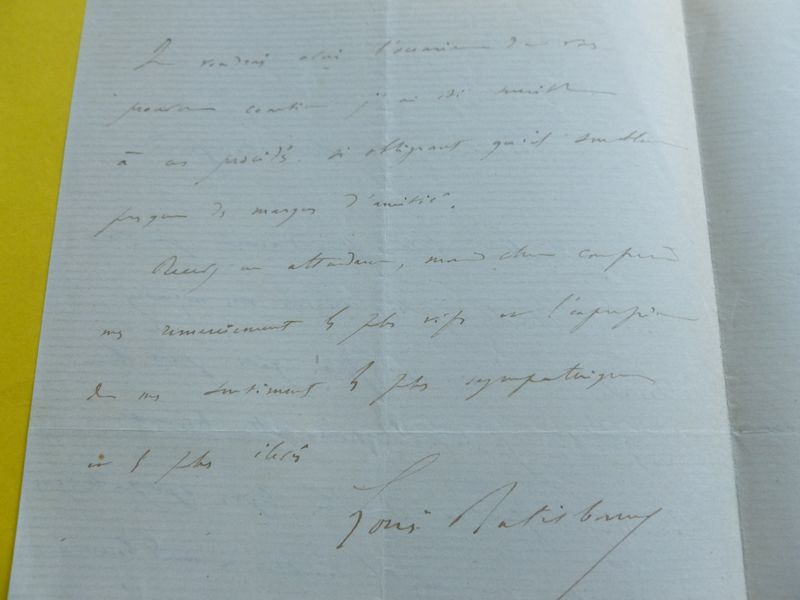 Je voudrais avoir l'occasion de vous
prouver combien j'ai été sensible
à ces procédés si obligeants qu'ils semblent
presque des marques d'amitié.
Recevez en attendant, mon cher confrère
mes remerciements les plus vifs et l'expression
de mes sentiments les plus sympathiques
et les plus
Louis Ratisbonne